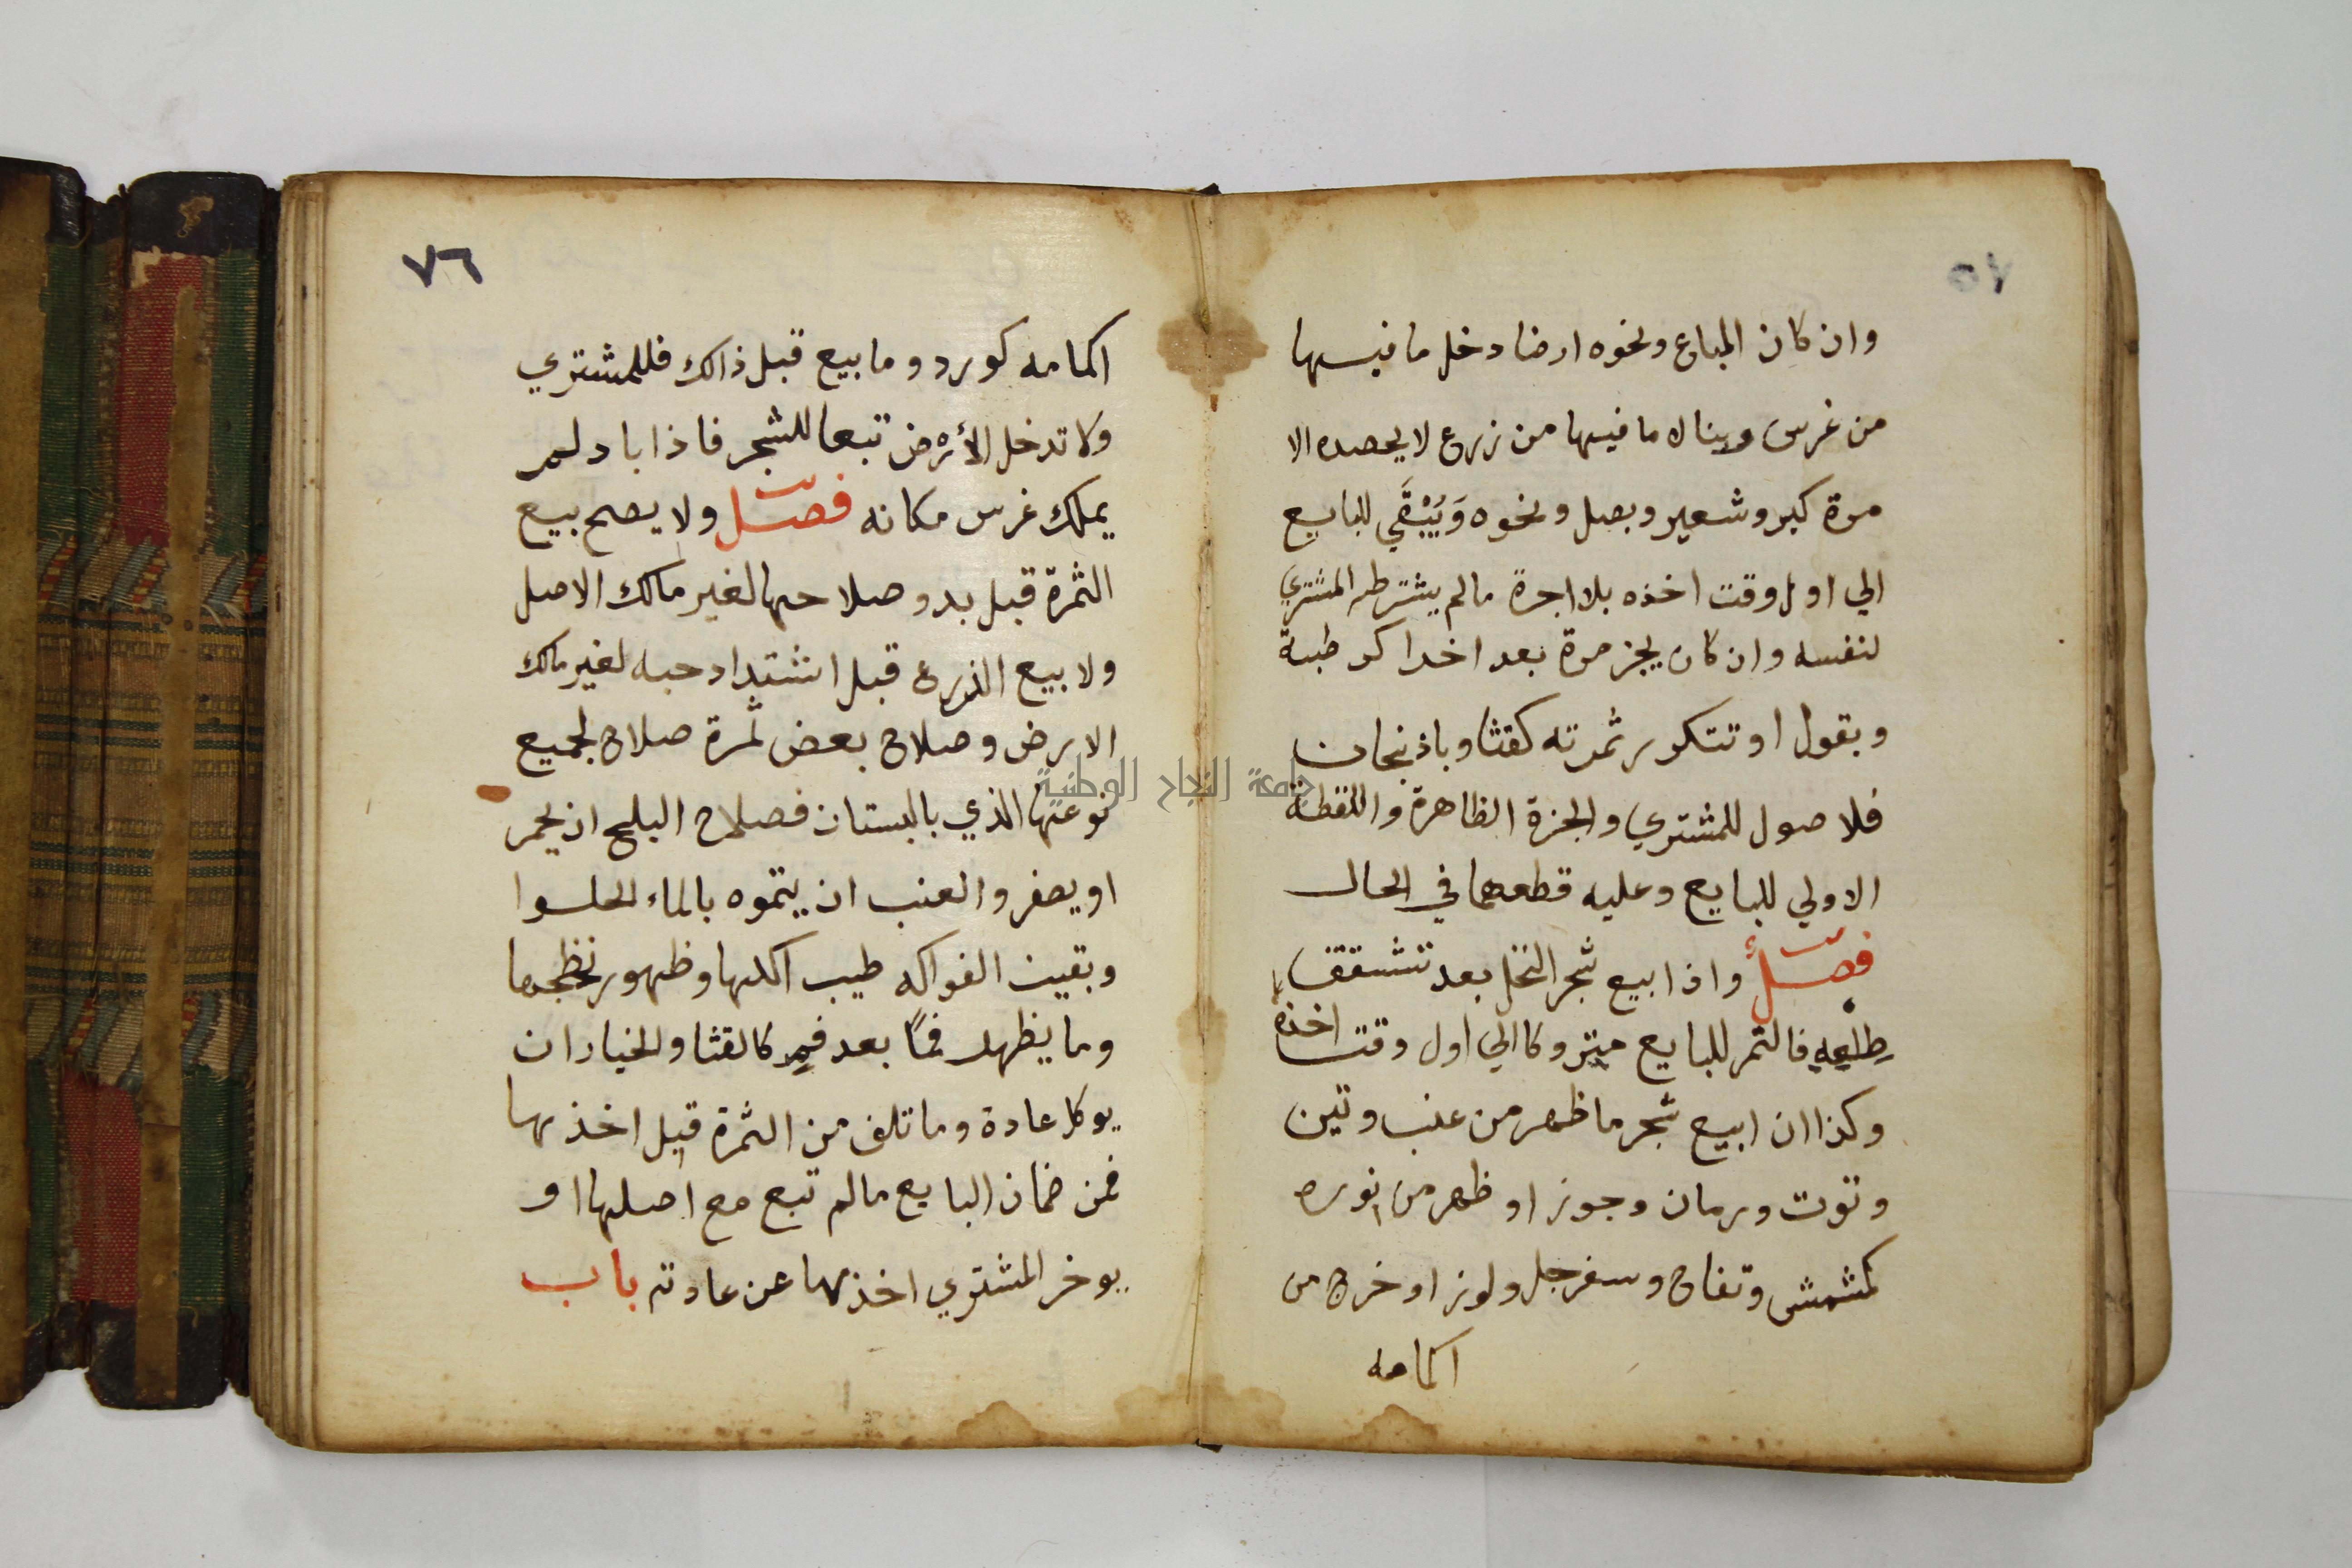 ٧٥
وان كان المباع ونحوه ارضا دخل ما فيها
من غرس وبنا لا ما فيها من زرع لا يحصده الا
مرة كبر وشعير وبصل ونحوه وَيُبْقَي للبايع
الي اول وقت اخذه بلا اجرة مالم يشترطه المشتري
لنفسه وان كان يجز مرة بعد اخدا كرطبة
وبقول او تتكرر ثمرته كقثا وباذنجان
فلاصول للمشتري والجزة الظاهرة واللقطة
الاولي للبايع وعليه قطعهما في الحال
فصل واذا بيع شجر النخل بعد تشقق
طلعه فالثمر للبايع متروكا الي اول وقت اخذه
وكذا ان ابيع شجر ما ظهر من عنب وتين
وتوت ورمان وجوز او ظهر من نوره
كمشمش وتفاح وسفرجل ولوز او خرج من
اكمامه
٧٦
اكمامه كورد وما بيع قبل ذالك فللمشتري
ولا تدخل الأرض تبعا للشجر فاذا باد لم
يملك غرس مكانه فصل ولا يصح بيع
الثمرة قبل بدو صلاحها لغير مالك الاصل
ولا بيع الزرع قبل اشتداد حبه لغير مالك
الارض وصلاح بعض ثمرة صلاح لجميع
نوعها الذي بالبستان فصلاح البلح ان يحمر
او يصفر والعنب ان يتموه بالماء الحلوا
وبقيت الفواكه طيب اكلها وظهور نظجها
وما يظهر فمًا بعد فمٍ كالقثا والخيار ان
يوكل عادة وما تلف من الثمرة قبل اخذها
فمن ضمان البايع مالم تبع مع اصلها او
يوخر المشتري اخذها عن عادته باب
جامعة النجاح الوطنية